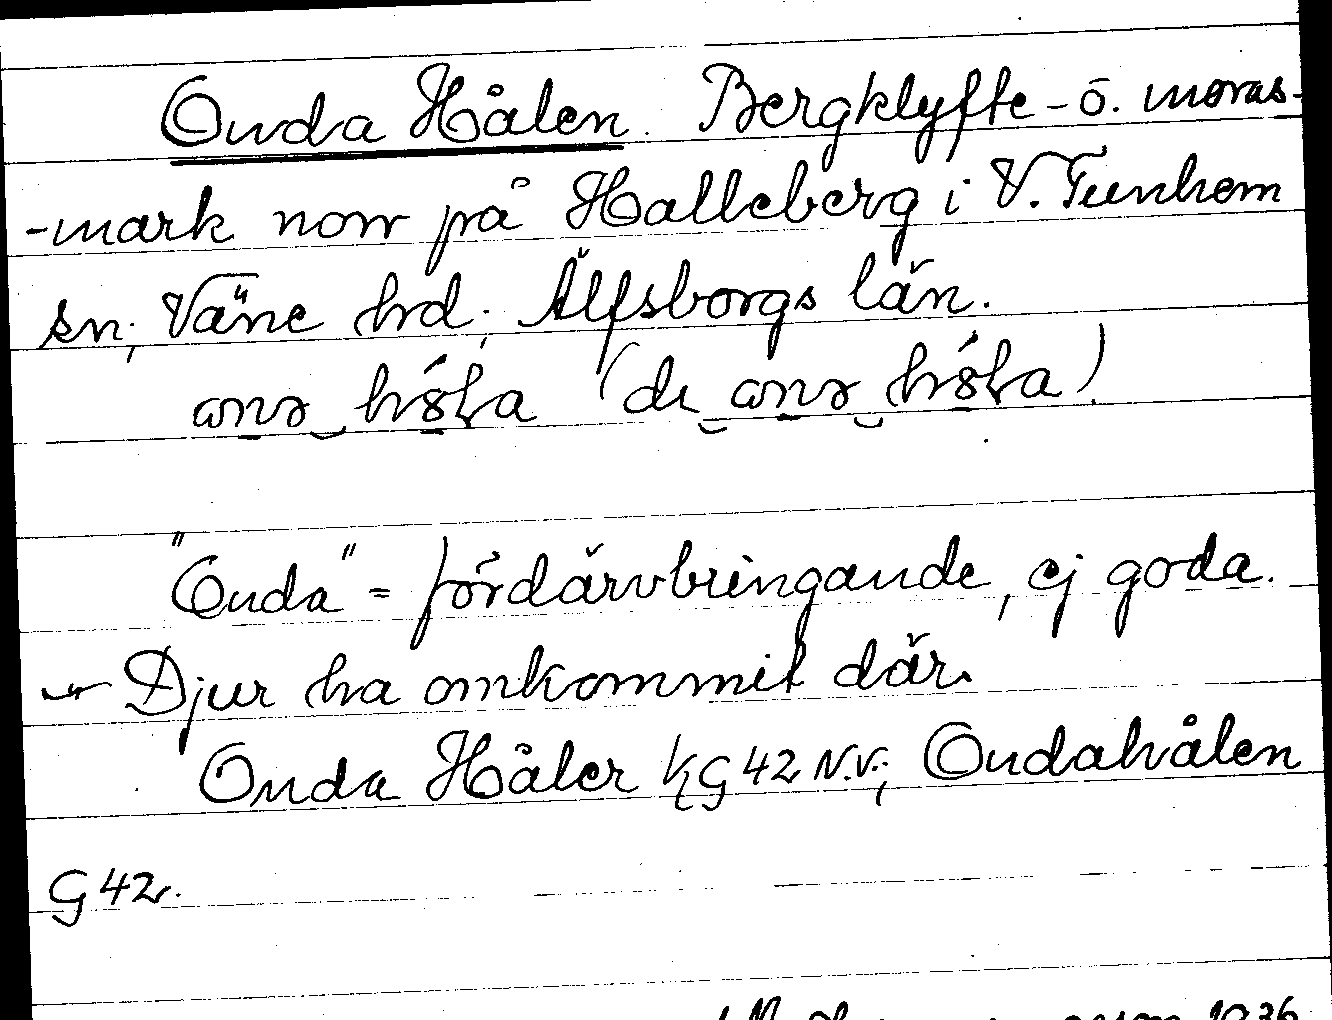 Onda Hålen. Bergklyfte- o. moras-
-mark norr på Halleberg i V. Tunhem
sn, Väne hrd, Älfsborgs län.
"Onda" = fördärvbringande, ej goda.
Djur ha omkommit där.
Onda Håler KG 42 N.V.; Ondahålen
G 42.
1936